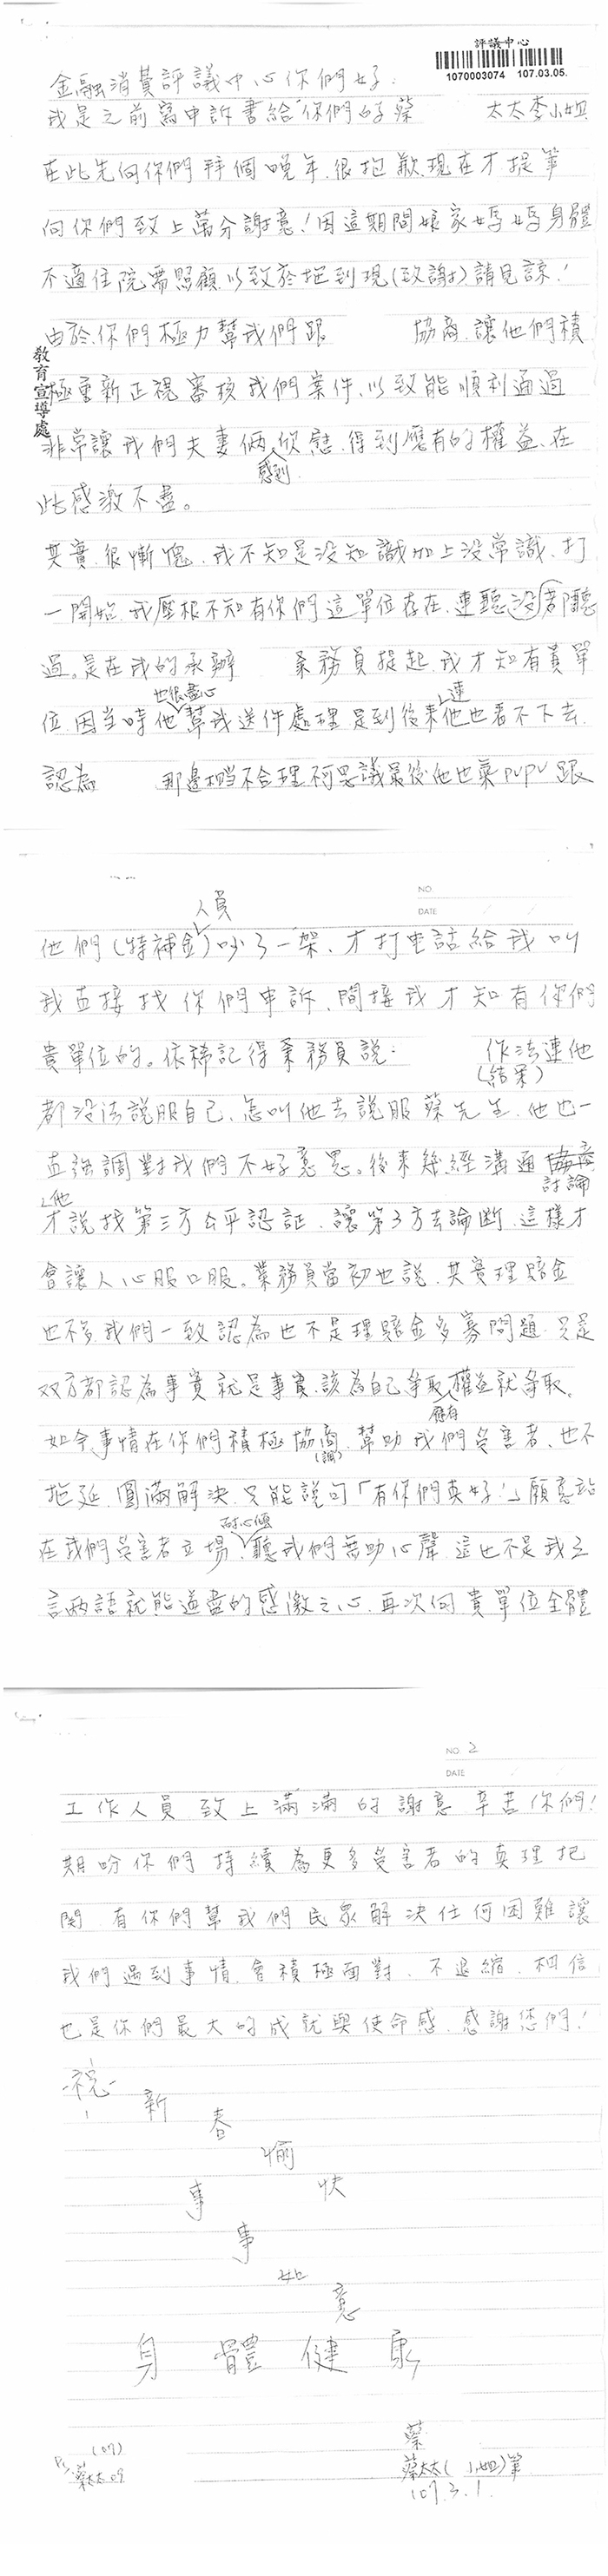 評議中心
1070003074 107.03.05.
金融消費評議中心你們好：
我是之前寫申訴書給你們的蔡 太太李小姐
在此先向你們拜個晚年.很抱歉.現在才提筆
向你們致上萬分謝意！因這期間娘家媽媽身體
不適住院需照顧.以致於拖到現(致謝)請見諒！
由於.你們極力幫我們跟 協商.讓他們積
教育宣導處
極重新正視審核我們案件.以致能順利通過
非常讓我們夫妻倆.欣慰.得到應有的權益.在
感到
此感激不盡。
其實.很慚愧.我不知是沒知識加上沒常識.打
一開始.我壓根不知有你們這單位存在.連聽沒有聽
過。是在我的承辦 業務員提起.我才知有貴單
也很盡心 連
位.因當時他幫我送件處理.是到後來他也看不下去.
認為 那邊 不合理.不可思議最後他也氣pupu跟
NO.
DATE
人員
他們(特補金)吵了一架.才打電話給我叫
我直接找你們申訴.間接我才知有你們
貴單位的。依稀記得業務員說: 作法連他
(結果)
都沒法說服自己.怎叫他去說服蔡先生.他也一
直強調對我們不好意思。後來幾經溝通
討論
他
才說找第三方公平認証.讓第3方去論斷.這樣才
會讓人心服口服。業務員當初也說.其實理賠金
也不多我們一致認為也不是理賠金多寡問題.只是
双方都認為事實就是事實.該為自己爭取權益就爭取。
應有
如今事情在你們積極協商.幫助我們受害者.也不
(調)
拖延.圓滿解決.只能說句「有你們真好！」願意站
耐心傾
在我們受害者立場.聽我們無助心聲.這也不是我三
言兩語就能道盡的感激之心.再次向貴單位全體
NO. 2
DATE
工作人員致上滿滿的謝意.辛苦你們！
期盼你們持續為更多受害者的真理把
關.有你們幫我們民眾解決任何困難讓
我們遇到事情.會積極面對.不退縮.相信
也是你們最大的成就與使命感.感謝您們！
祝
新春愉快
事事如意
身體健康
蔡
(07)
蔡太太( 小姐)筆
PS.蔡太太09
107.3.1.